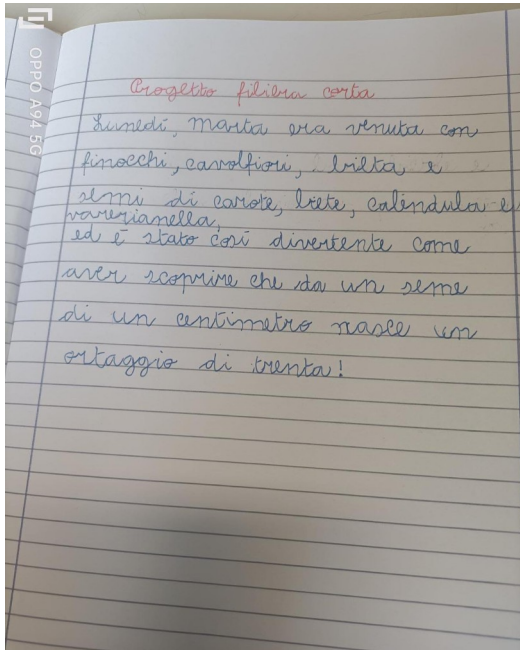 OPPO A94 5G
Progetto filiera corta
Lunedí, Marta era venuta con
finocchi, cavolfiori, bielta e
semi di carote, biete, calendula e
varerianella,
ed è stato cosí divertente come
aver scoprire che da un seme
di un centimetro nasce un
ortaggio di trenta!